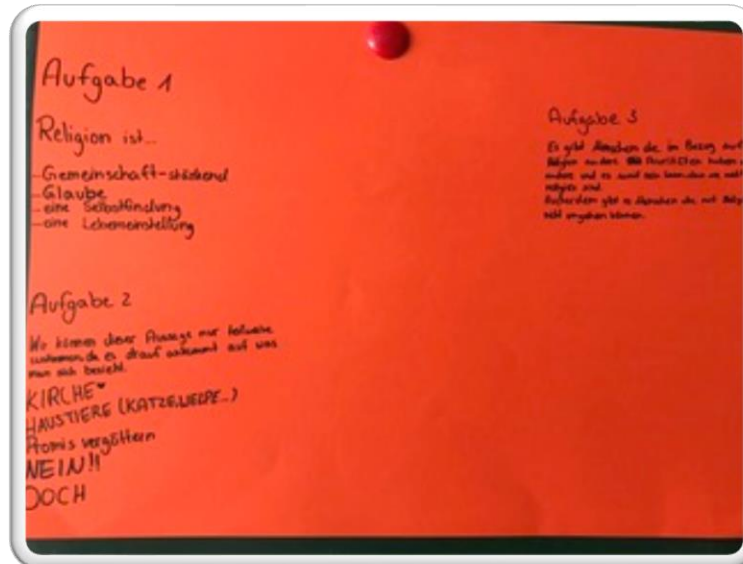 Aufgabe 1
Religion ist...
- Gemeinschaft-stärkend
- Glaube
- eine Selbstfindung
- eine Lebenseinstellung
Aufgabe 2
Wir können dieser Aussage nur teilweise
zustimmen, da es drauf ankommt auf was
man sich bezieht.
KIRCHE♥
HAUSTIERE (KATZE, WELPE...)
Promis vergöttern
NEIN!!
DOCH
Aufgabe 3
Es gibt Menschen die im Bezug auf
Religion andere Prioritäten haben
andere und es kann sein dass sie nicht
religiös sind.
Außerdem gibt es Menschen die mit
nicht umgehen können.